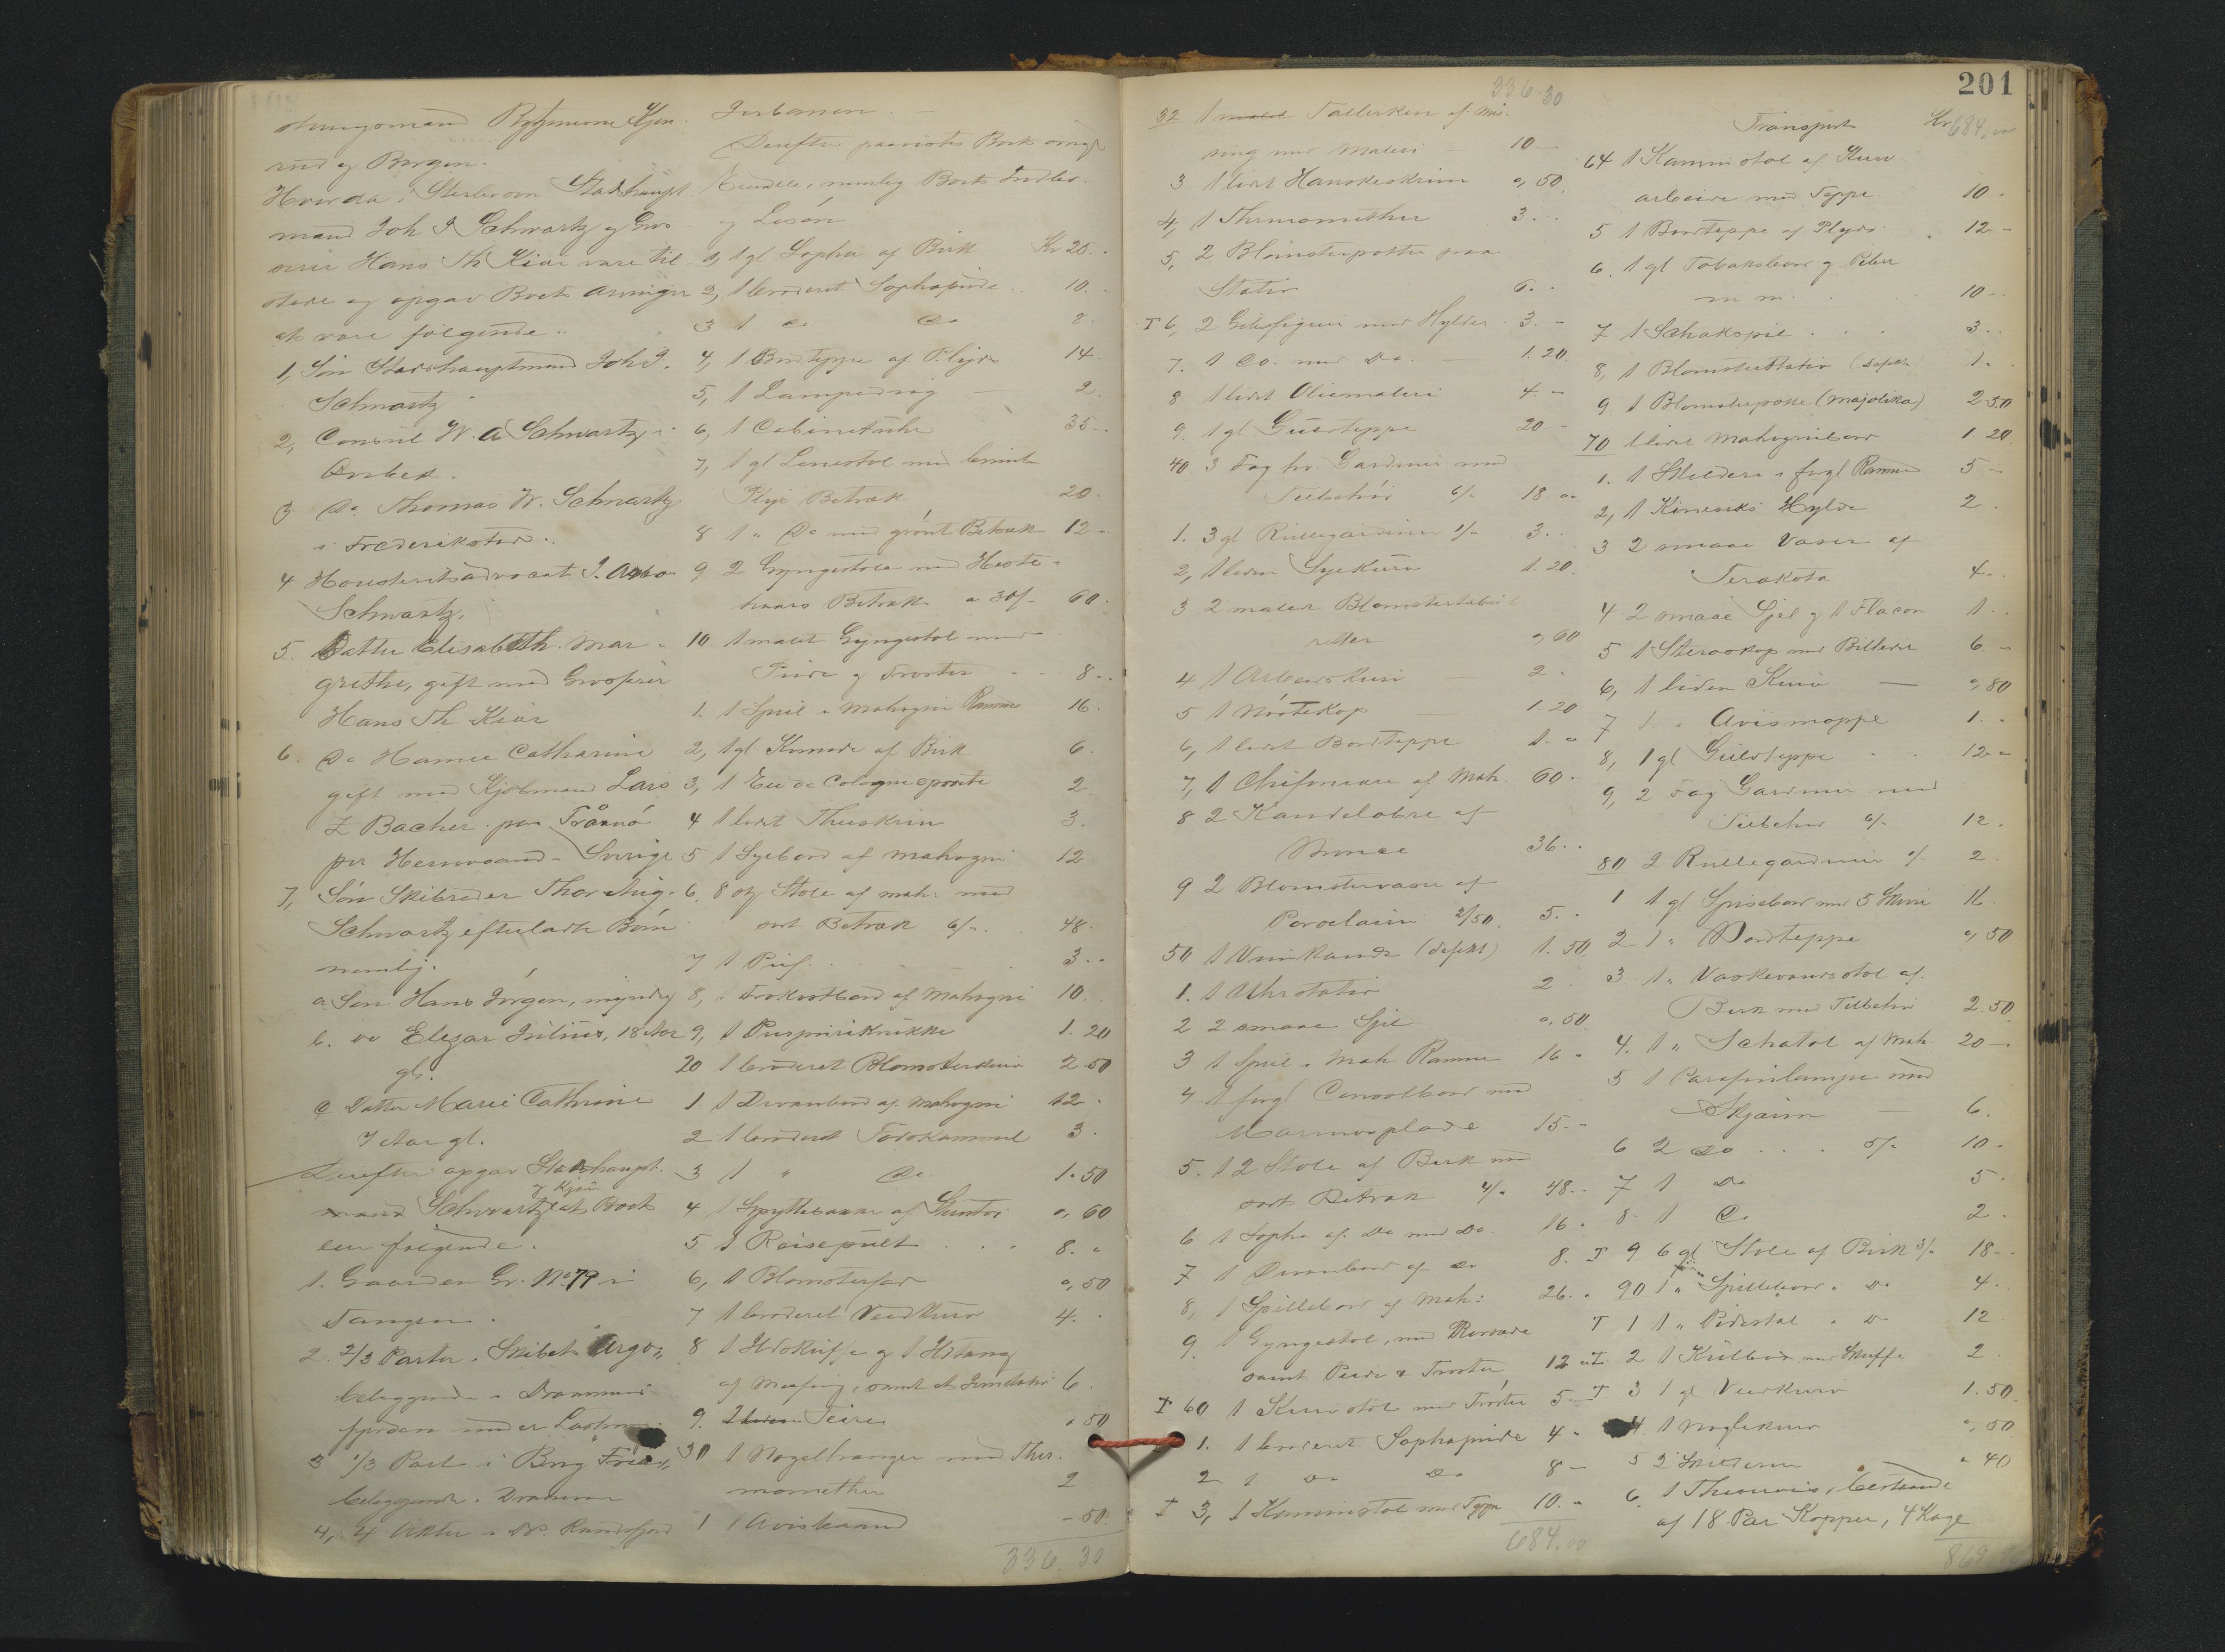 rud og Bergen.
Hvorda i Sterboen Stadshaupt-
mand Joh J Schwartz og Gros-
serer Hans Th Kiær vare til
stede og opgav Boets Arvinger
at være følgende:
1, Søn Stadshauptmand Joh J.
Schwartz
2, Consul W. A Schwartz i
3 Do Thomas W. Schwartz
i Frederikstad.
4 Høiesteretsadvocat J.
Schwartz.
5. Datter Elisabeth Mar-
grethe, gift med Grosserer
Hans Th Kiær
6. Do Hanna Catharine
gift med Lars
Z Bacher paa
per Hernøsand - Sverige
7, Søn Skibsreder Thor
Schwartz efterladte Børn
nemlig.
a. Søn Hans Jørgen, myndig
b. do Elegar Julius, 18 Aar
gl.
c Datter Marie Cathrine
7 Aar gl.
Derefter opgav Stadshaupt-
mand Schwartz og Kjær at Boet
eier følgende.
1. Gaarden Gr. No 79 i
Tangen.
2. 2/3 Parter i Skibet Argo,,
beliggende i Drammens-
fjorden under
3 1/3 Part i Brig
beliggende i Drammen
4, 4 Aktier i
Derefter Boets
Eiendele, nemlig Boets Indbo
og Løsøre
1, 1 gl Sopha af Birk Kr 25..
2, 1 broderet Sophapude.. 10.
3 1 do do 8.
4, 1 Bordteppe af Plyds 14.
5, 1 Lampedug - 2.
6, 1 Cabinetuhr 35..
7, 1 gl Lænestol med brunt
Plyds Betræk 20.
8 1 " Do med grønt Betræk 12 -
9 2 Gyngestole med Heste-
haars Betræk a 30/- 60.
10 1 malet Gyngestol med
Pude og Trøster - 8..
1. 1 Speil i Mahogni Ramme 16.
2, 1 gl Komode af Birk 6.
3, 1 Eu de Cologne 2
4 1 lidet Theskrin 3.
5 1 Syebord af Mahogni 12
6. 8 Stk Stole af Mah. med
sort Betræk 6/-. 48.
7 1 Puf. 3..
8, 1 Frokostbord af Mahogni 10.
9, 1 1.20
20 1 broderet Blomsterkurv 2.50
1. 1 Divanbord af Mahogni 12.
2 1 broderet Fodskammel 3.
3 1 " do. 1.50
4 1 Spyttebakke af Stentøi 0,60
5 1 Reisepult . . . 8.
6, 1 Blomsterfad 0,50
7 1 broderet Vedkurv 4.
8 1 Ildskuffe og 1 Ildtang
af Messing, samt 6.
9. 2 50
30 1 Nøgelhænger med Ther-
momether 2
1 1 Avisbaand - 50.
336.30
336.30
201
32 1 malet Tallerken af Mes-
sing med Maleri - 10 -
3. 1 lidet Handskeskrin 0,50.
4, 1 Thermomether 3...
5, 2 Blomsterpotter paa
Stativ 6..
T 6, 2 Gibsfigurer med Hylder. 3. -
7. 1 do. med Do. 1.20.
8 1 lidet Oliemaleri 4. -
9. 1 gl Gulvteppe 20 -
40. 3 Fag hv. Gardiner med
Tilbehør 6/- 18
1. 3 gl Rullegardiner 1/- 3..
2, 1 liden Syekurv 1.20.
3 2 malede
0,60
4 1 Arbeidskurv - 2.
5 1 - 1.20
6, 1 lidet Bordteppe 1.
7, 1 Chifoniere af Mah. 60.
8 2 Kandelabre af
Bronce 36..
9 2 Blomstervaser af
Porcelain 2/50. 5..
50 1 Vinkande (defekt) 1.50.
1. 1 Uhrstativ 2.
2 2 smaae 0,50.
3 1 Speil i Mah Ramme 16 -
4 1 Consolbord med
Marmorplade 15 -
5. 12 Stole af Birk med
sort Betræk 4/- 48..
6 1 Sopha af Do med Do. 16.
7 1 Divanbord af do 8.
8, 1 Spillebord af Mah: 26..
9. 1 Gyngestol, med
samt Pude & Trøster, 12
T 60 1 Kurvstol med Trøster 5-
1. 1 broderet Sophapude 4 -
2 1 Do Do 8 -
T 3, 1 Kurvstol med Teppe 10. -
684.00
Transport Kr 684.00
64 1 Kaminstol af Kurv
arbeide med Teppe. 10.
5 1 Bordteppe af Plyds. 12 -
6. 1 gl Tobaksbord og Piber
m m. 10 -
7 1 Schakspil . . . 3..
8, 1 Blomsterstativ (defekt) 1.
9. 1 Blomsterpotte (Majolika) 2.50
70 1 lidet Mahognibord 1.20
1. 1 Skilderi i Ramme 5 -
2, 1 Hylde 2.
3 2 smaae Vaser af
Terakota 4..
4 2 smaae og 1 Flacon 1..
5 1 Steroskop med Billeder 6. -
6, 1 liden Kurv - 0,80
7 1 " Avismappe 1..
8, 1 gl Gulvteppe 12
9, 2 Fag Gardiner med
Tilbehør 6/- 12.
80 2 Rullegardiner 1/- 2
1 1 gl Spisebord med 5 16
2 1 " Bordteppe 0,50
3 1 " Vaskevandsstol af
Birk med Tilbehør 2.50
4. 1 " Schatol af Mah. 20 -
5 1 Parafinlampe med
Skjærm - 6.
6 2 do . . . 5/- 10.
7 1 Do 5.
8. 1 do 2.
T 9 6 gl Stole af Birk 3/- 18 -
90 1 " Spillebord " Do 4.
T 1 1 " Pidestal " Do 12
T 2 1 med Skuffe 2.
T 3 1 gl Vedkurv 1.50.
4. 1 Nøglekurv 0,50
5 2 Skilderier 40
6. 1 bestaaende
af 18 Par Kopper, 4 Kage